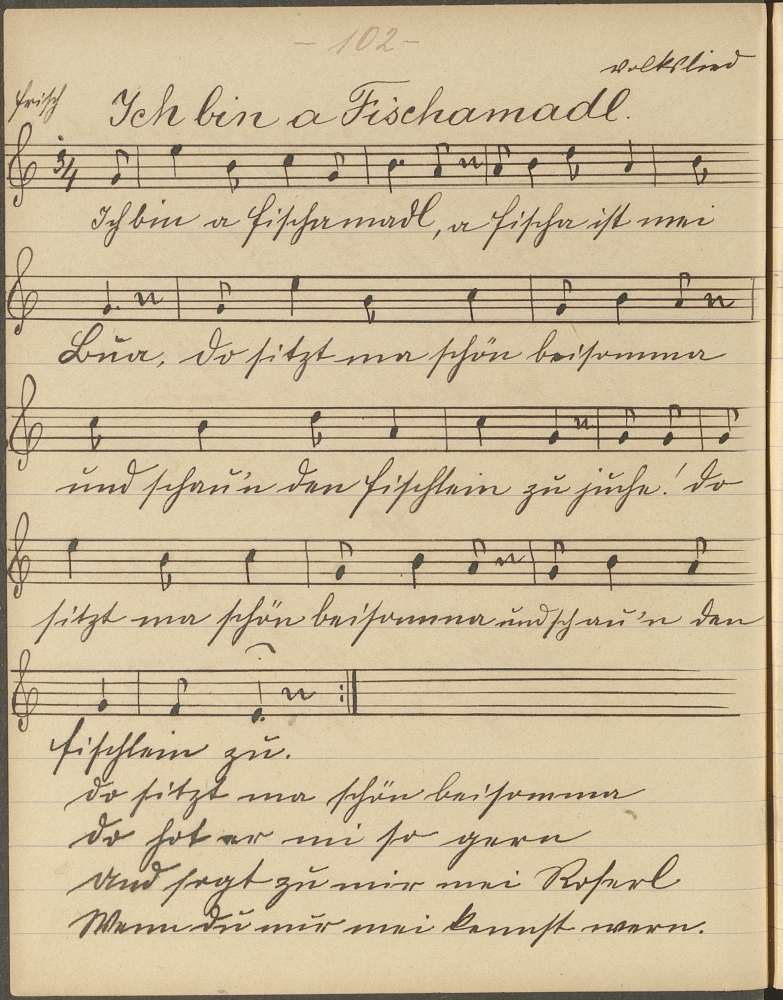 - 102 -
Volkslied
frisch
Ich bin a Fischamadl.
3/4
Ich bin a Fischamadl, a Fischa ist mei
Bua, do sitzt ma schön beisomma
und schau'n den Fischlein zu juche! do
sitzt ma schön beisomma und schau'n den
Fischlein zu.
do sitzt ma schön beisomma
do hot er mi so gern
Und sogt zu mir mei Roserl
Wenn du nur mei kennst wern.